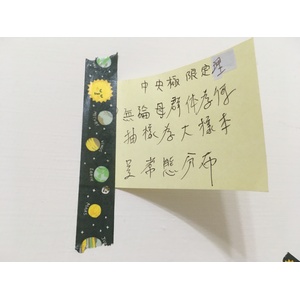 中央極限定理
無論母群体為何
抽樣為大樣本
呈常態分布